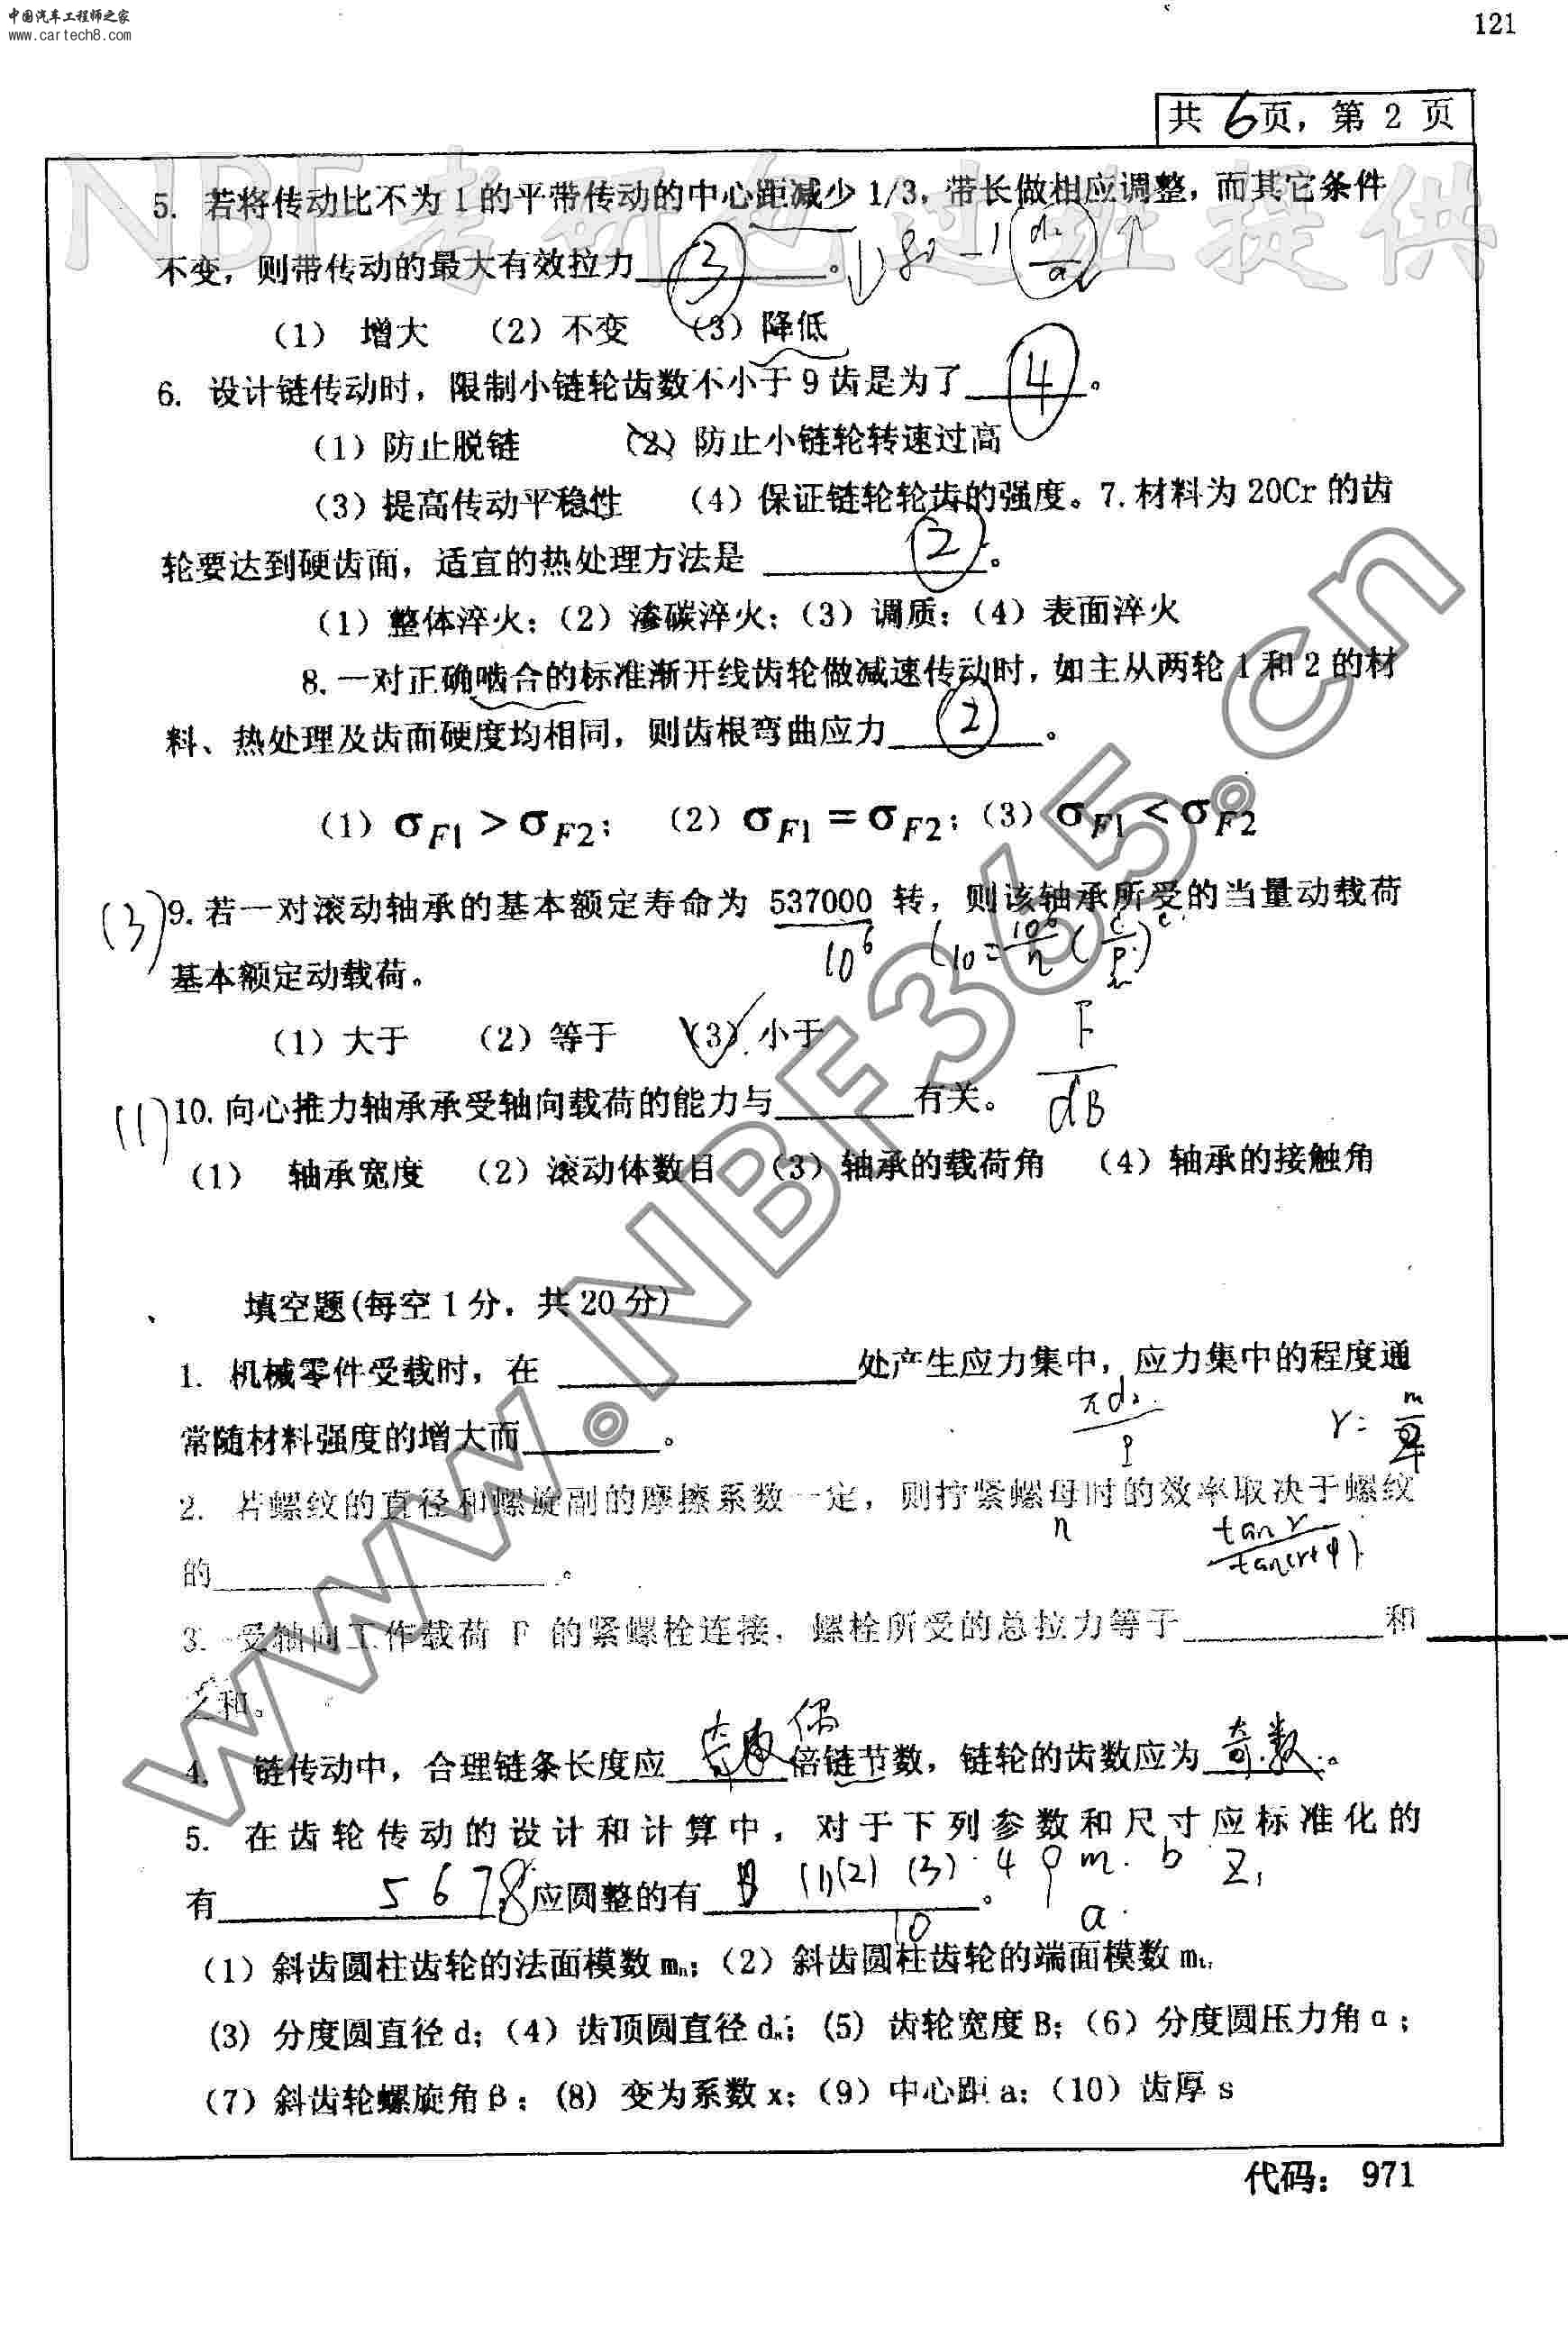 中国汽车工程师之家
www.cartech8.com
121
共 6 页，第 2 页
NBF考研包过班提供
5. 若将传动比不为1的平带传动的中心距减少 1/3，带长做相应调整，而其它条件
不变，则带传动的最大有效拉力 ③ 。
(1) 增大 (2) 不变 (3) 降低
6. 设计链传动时，限制小链轮齿数不小于9齿是为了 ④ 。
(1) 防止脱链 (2) 防止小链轮转速过高
(3) 提高传动平稳性 (4) 保证链轮轮齿的强度。7. 材料为 20Cr 的齿
轮要达到硬齿面，适宜的热处理方法是 ② 。
(1) 整体淬火；(2) 渗碳淬火；(3) 调质；(4) 表面淬火
8. 一对正确啮合的标准渐开线齿轮做减速传动时，如主从两轮 1 和 2 的材
料、热处理及齿面硬度均相同，则齿根弯曲应力 ② 。
(1) σF1 > σF2； (2) σF1 = σF2；(3) σF1 < σF2
(3) 9. 若一对滚动轴承的基本额定寿命为 537000 转，则该轴承所受的当量动载荷
10^6
基本额定动载荷。
(1) 大于 (2) 等于 (3) 小于
F
(1) 10. 向心推力轴承承受轴向载荷的能力与 有关。
dB
(1) 轴承宽度 (2) 滚动体数目 (3) 轴承的载荷角 (4) 轴承的接触角
www.NBF365.cn
、 填空题(每空 1 分，共 20 分)
1. 机械零件受载时，在 处产生应力集中，应力集中的程度通
常随材料强度的增大而 。
2. 若螺纹的直径和螺旋副的摩擦系数一定，则拧紧螺母时的效率取决于螺纹
n
的 。
3. 受轴向工作载荷 F 的紧螺栓连接，螺栓所受的总拉力等于 和
之和。
偶
4. 链传动中，合理链条长度应 倍链节数，链轮的齿数应为 奇数 。
5. 在齿轮传动的设计和计算中，对于下列参数和尺寸应标准化的
m. b Z₁
有 5 6 7 8 应圆整的有 (1)(2) (3) 4 9 。
10 a.
(1) 斜齿圆柱齿轮的法面模数 mn；(2) 斜齿圆柱齿轮的端面模数 mt，
(3) 分度圆直径 d；(4) 齿顶圆直径 da；(5) 齿轮宽度 B；(6) 分度圆压力角 α；
(7) 斜齿轮螺旋角 β；(8) 变为系数 x；(9) 中心距 a；(10) 齿厚 s
代码： 971